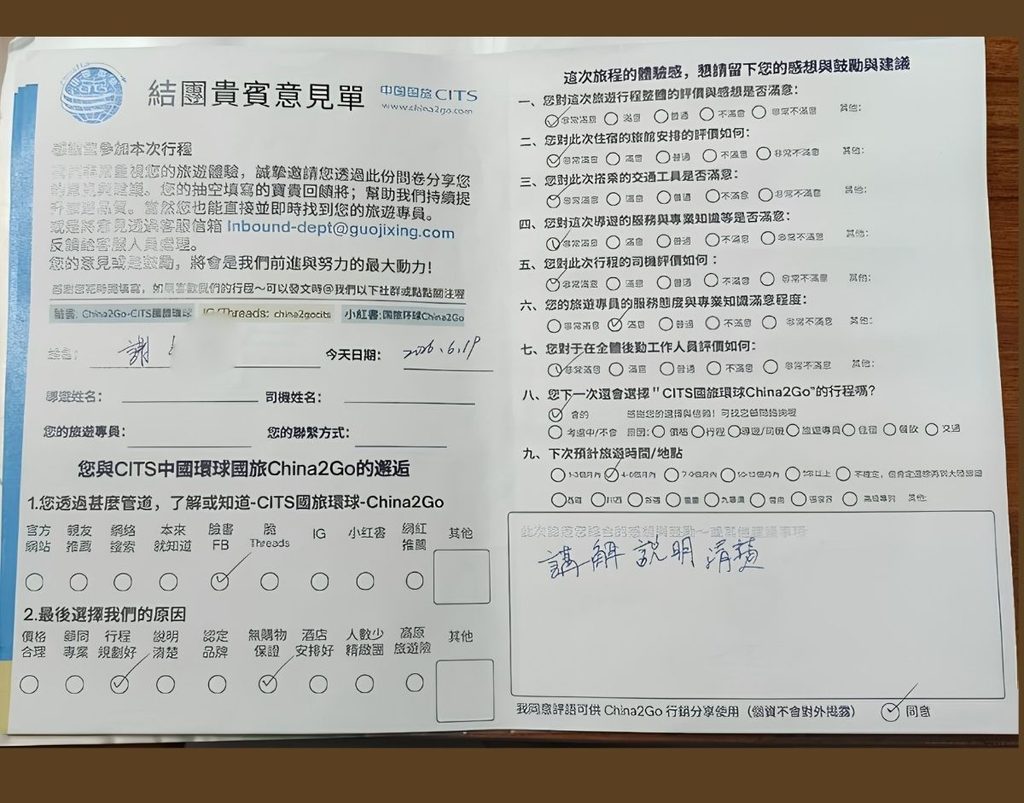 結團貴賓意見單
中国国旅 CITS
www.china2go.com
參加本次行程
重視您的旅遊體驗，誠摯邀請您透過此份問卷分享您
您的抽空填寫的寶貴回饋將；幫助我們持續提
當然您也能直接並即時找到您的旅遊專員。
或是將意見透過客服信箱 Inbound-dept@guojixing.com
反饋給客服人員處理。
您的意見或是鼓勵，將會是我們前進與努力的最大動力！
如果喜歡我們的行程～可以發文時@我們以下社群或點點關注喔
臉書: China2Go-CITS國旅環球
IG/Threads: china2gocits
小紅書:国旅环球China2Go
姓名: 謝
今天日期: 2026.6.19
導遊姓名:
司機姓名:
您的旅遊專員:
您的聯繫方式:
您與CITS中國環球國旅China2Go的邂逅
1.您透過甚麼管道，了解或知道-CITS國旅環球-China2Go
官方網站 親友推薦 網絡搜索 本來就知道 臉書FB 脆Threads IG 小紅書 網紅推薦 其他
2.最後選擇我們的原因
價格合理 顧問專業 行程規劃好 說明清楚 認定品牌 無購物保證 酒店安排好 人數少精緻團 高原旅遊險 其他
這次旅程的體驗感，懇請留下您的感想與鼓勵與建議
一、您對這次旅遊行程整體的評價與感想是否滿意:
非常滿意 滿意 普通 不滿意 非常不滿意 其他:
二、您對此次住宿的旅館安排的評價如何:
非常滿意 滿意 普通 不滿意 非常不滿意 其他:
三、您對此次搭乘的交通工具是否滿意:
非常滿意 滿意 普通 不滿意 非常不滿意 其他:
四、您對這次導遊的服務與專業知識等是否滿意:
非常滿意 滿意 普通 不滿意 非常不滿意 其他:
五、您對此次行程的司機評價如何：
非常滿意 滿意 普通 不滿意 非常不滿意 其他:
六、您的旅遊專員的服務態度與專業知識滿意程度:
非常滿意 滿意 普通 不滿意 非常不滿意 其他:
七、您對于在全體後勤工作人員評價如何:
非常滿意 滿意 普通 不滿意 非常不滿意 其他:
八、您下一次還會選擇" CITS國旅環球China2Go"的行程嗎?
會的 感謝您的選擇與信賴！
考慮中/不會 原因: 價格 行程 導遊/司機 旅遊專員 住宿 餐飲 交通
九、下次預計旅遊時間/地點
1-3個月內 4-6個月內 7-9個月內 10-12個月內
其他:
講解說明清楚
我同意評語可供 China2Go 行銷分享使用（個資不會對外揭露） 同意